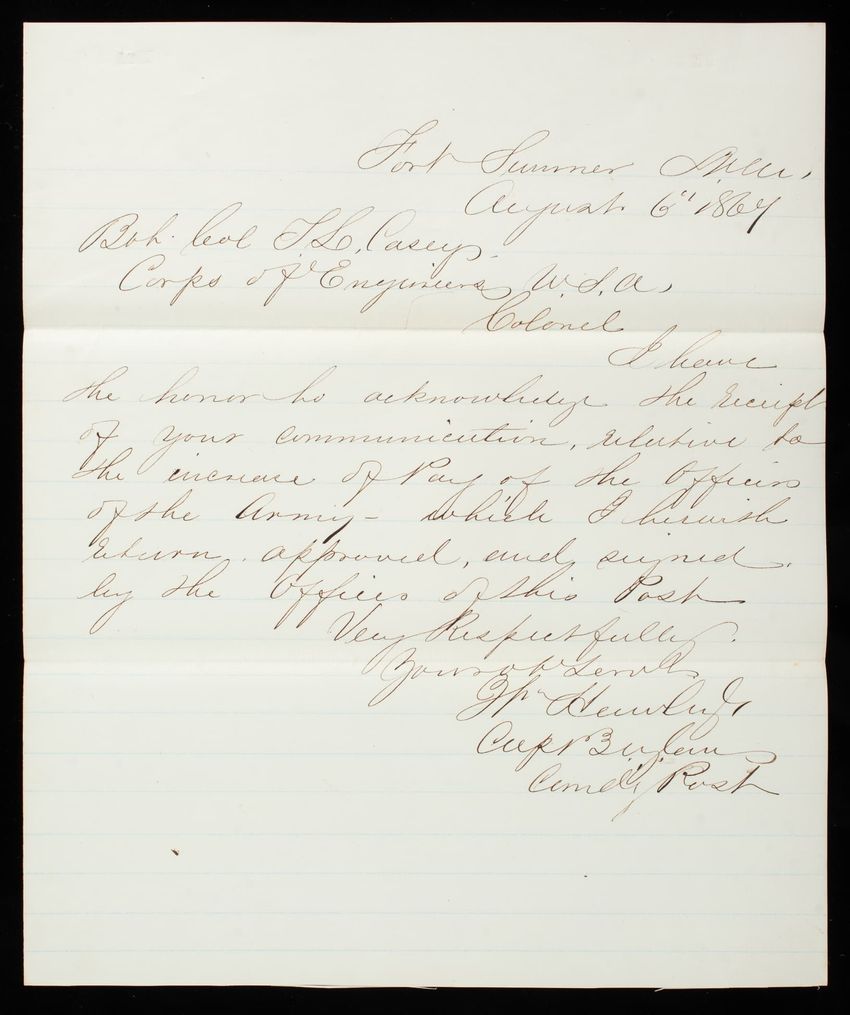 Fort Sumner N.M.,
August 6" 1867
Bvt. Col T.L. Casey.
Corps of Engineers, U.S.A,
Colonel
I have
the honor to acknowledge the receipt
of your communication, relative to
the increase of Pay of the Officers
of the Army - which I herewith
return, approved, and signed
by the Officers of this Post
Very Respectfully.
Your obt Servt.
Wm
Capt
Comdg Post